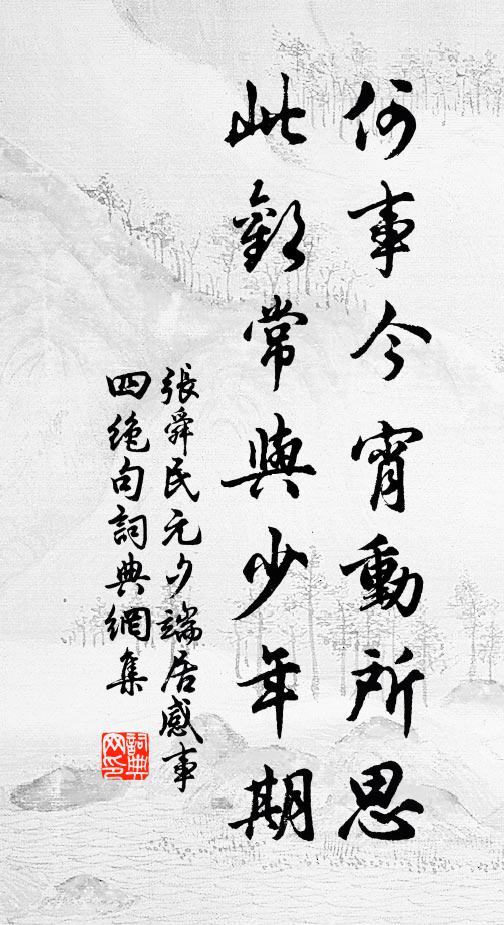 何事今宵動所思
此歡常與少年期
張舜民元夕端居感事
四絶句詞典網集
詞典
网印